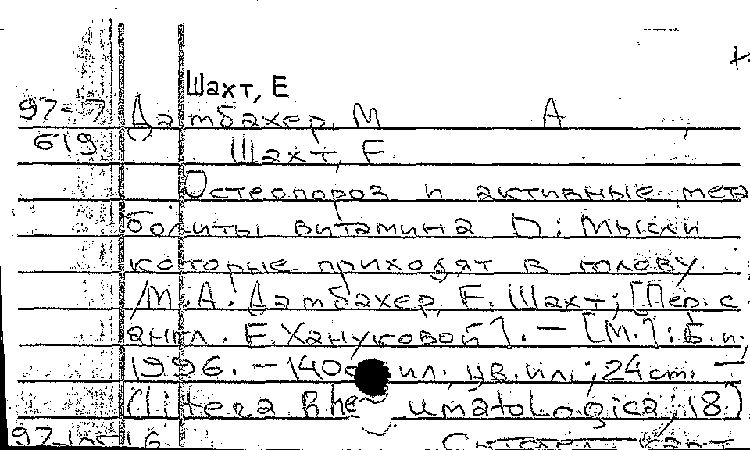 Шахт, Е
97-7 Дамбахер, М А
619 Шахт, Е.
Остеопороз и активные мета
болиты витамина D: Мысли
которые приходят в голову.
/М.А. Дамбахер, Е. Шахт; [Пер. с
англ. Е. Хануковой]. - [М.]: Б.и.,
1996. - 140с ил., цв. ил.; 24 см. -
(Litera Rheumatologica; 18.)